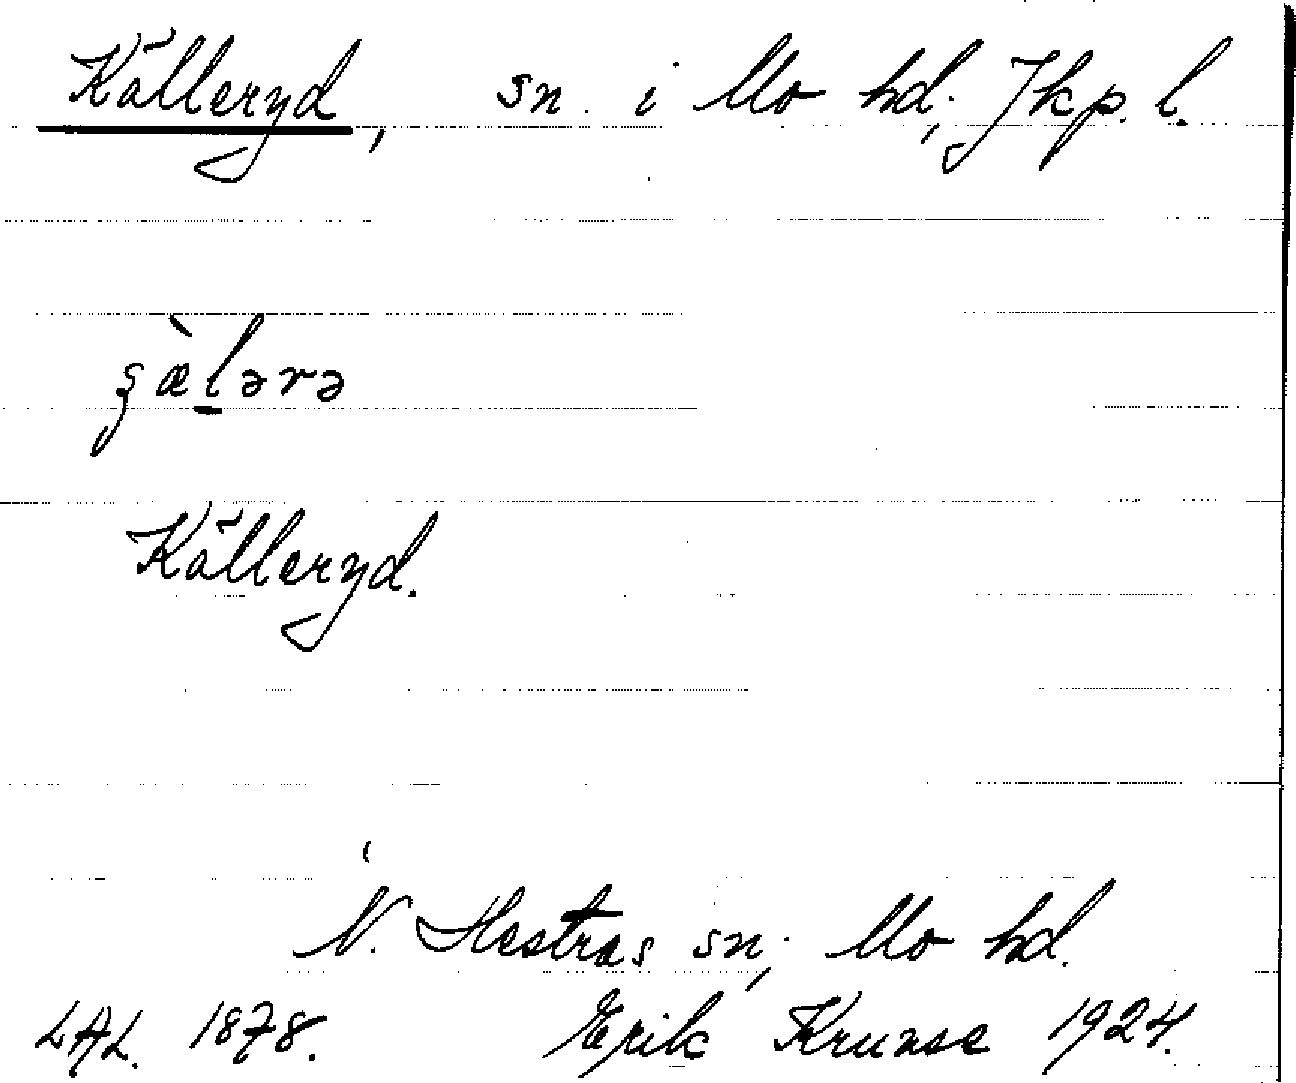 Källeryd, sn. i Mo hd., Jkp. l.
ʂæ̀lərə
Källeryd.
N. Hestras sn., Mo hd.
LAL. 1878. Erik Krunse 1924.